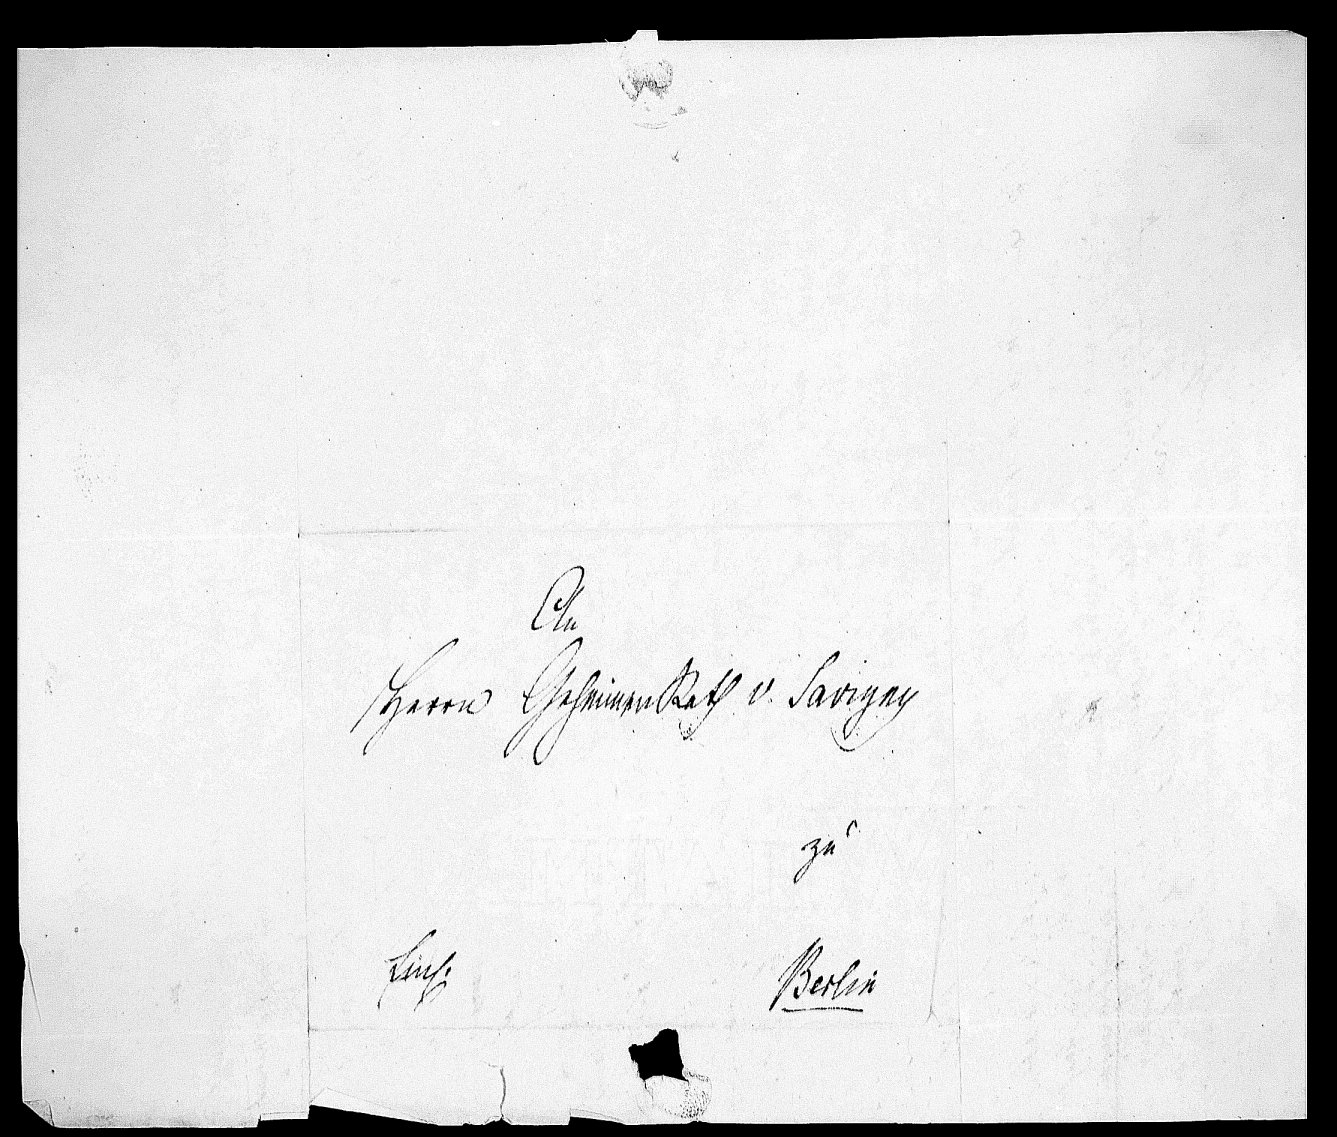 An
Herrn Geheimen Rath v. Savigny
zu
Berlin